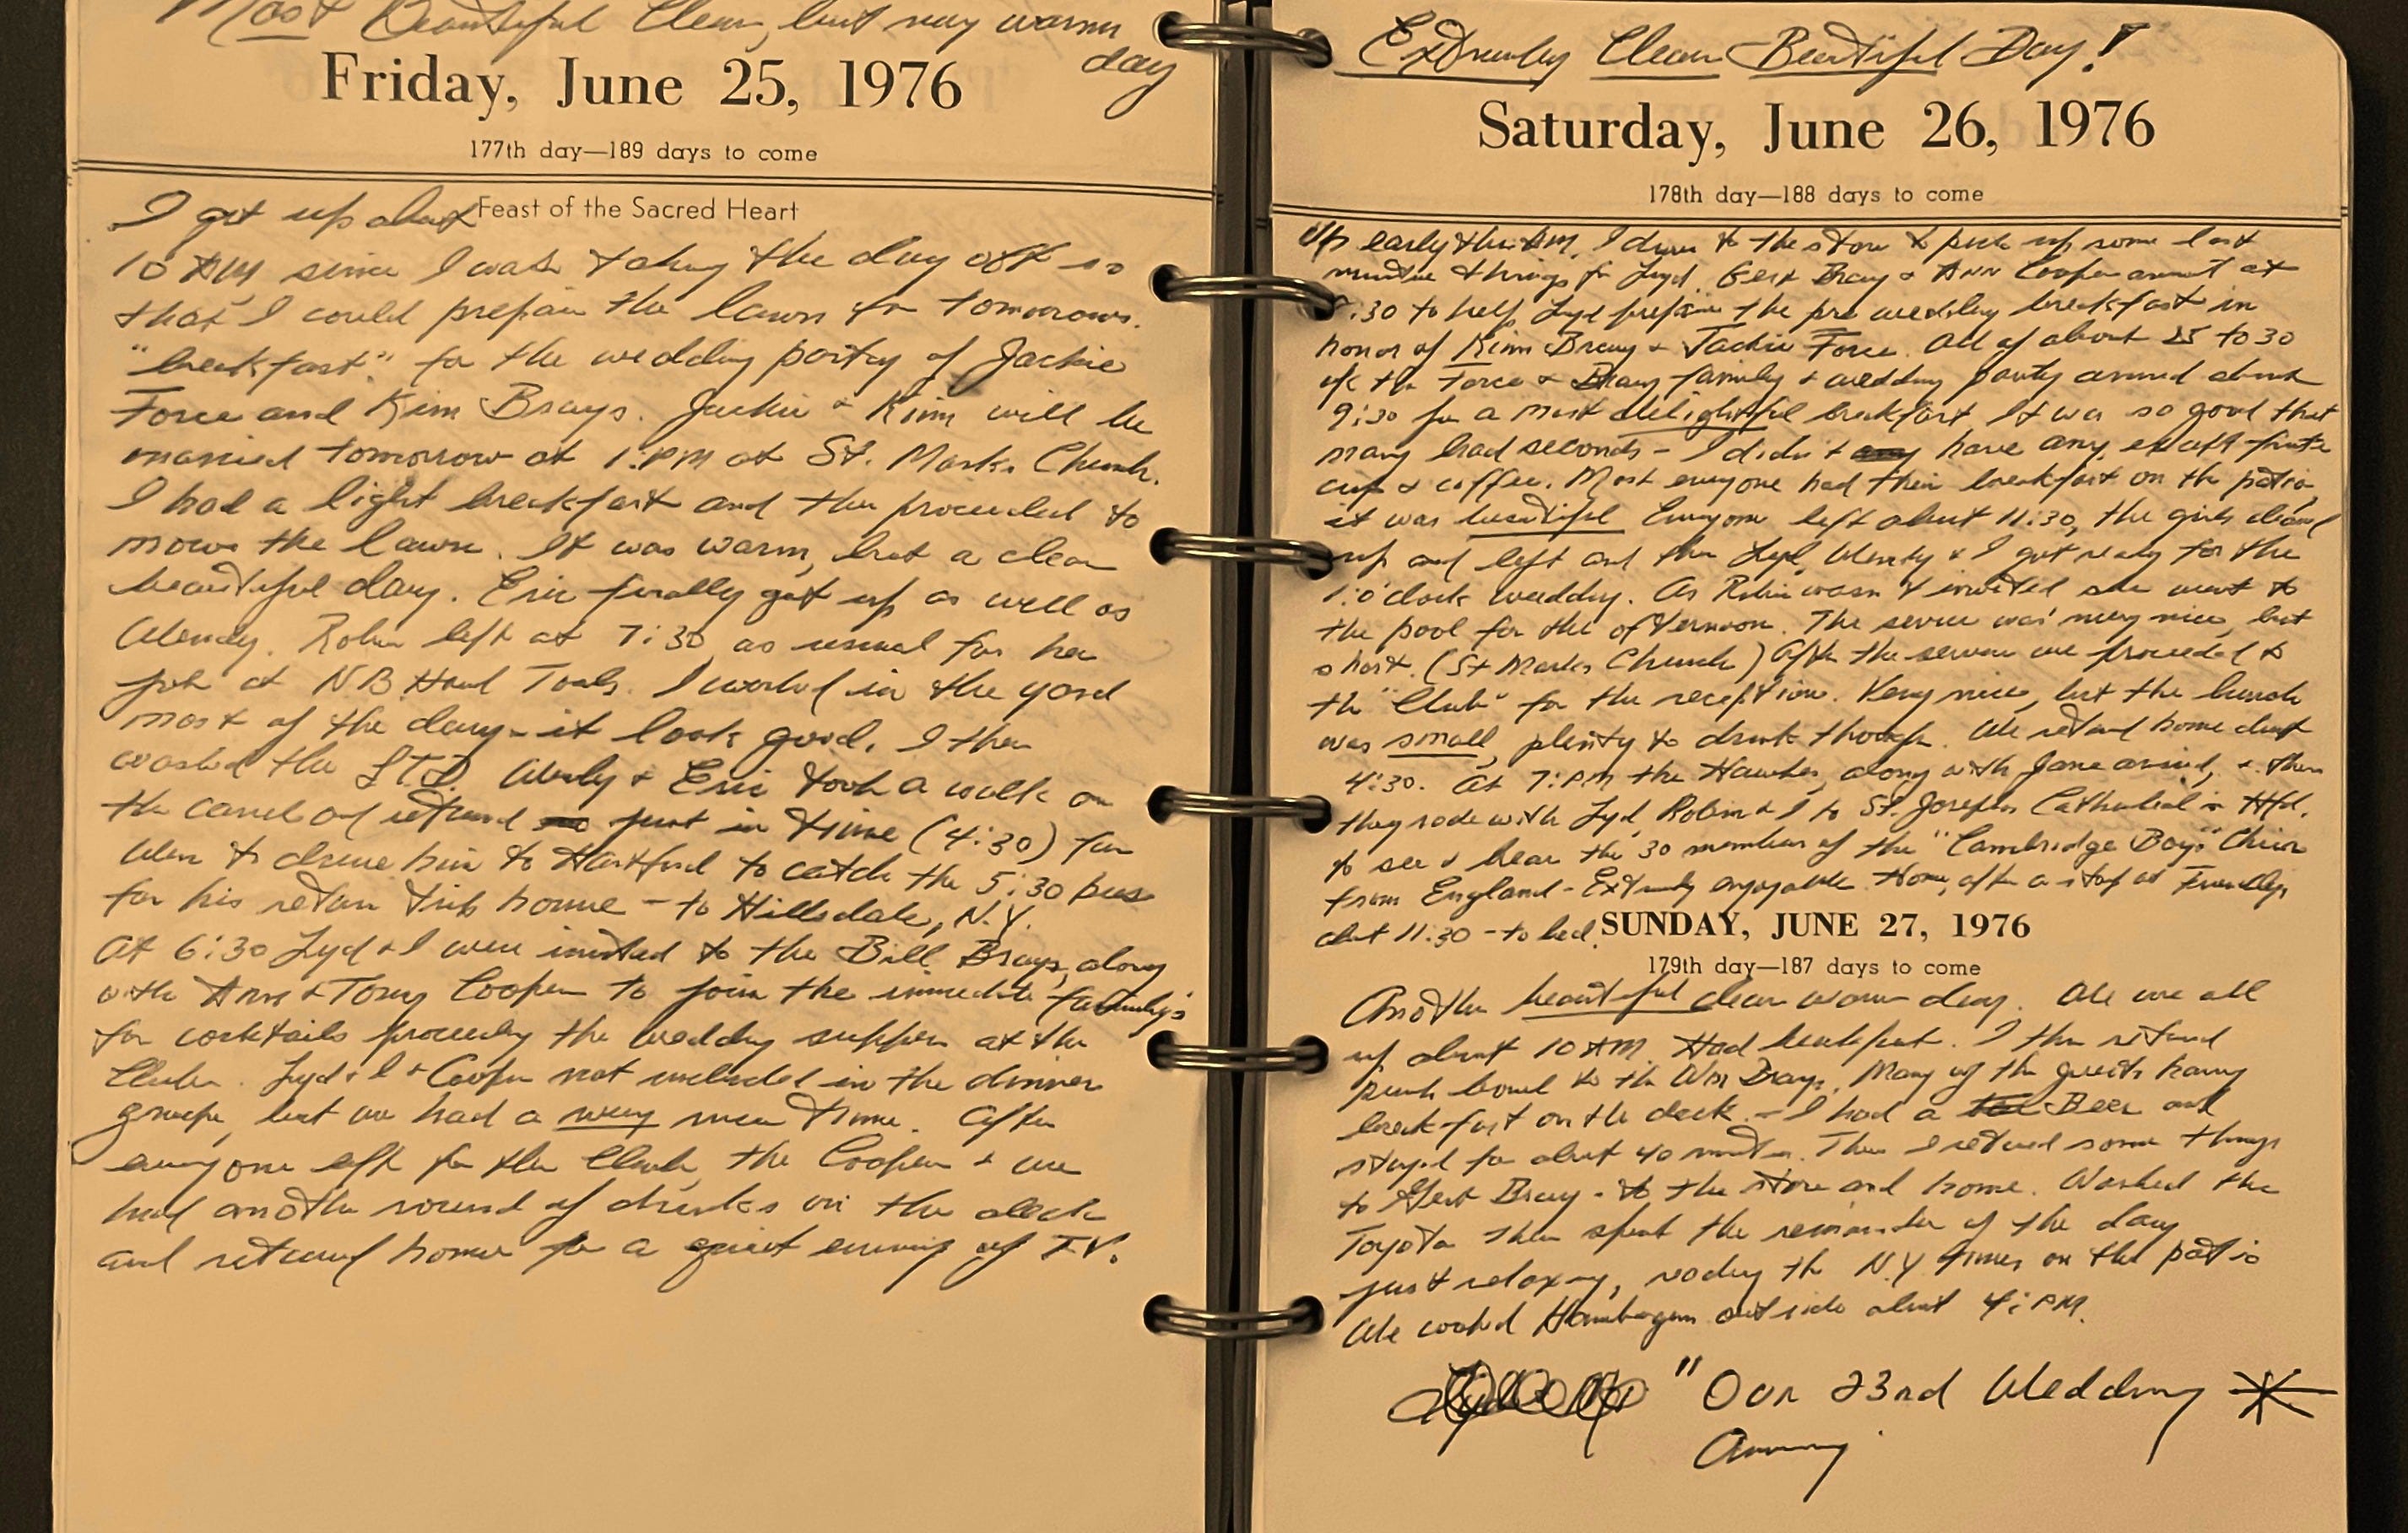 Most Beautiful Clear, but very warm
day
Friday, June 25, 1976
177th day—189 days to come
Feast of the Sacred Heart
I got up about
10 AM since I was taking the day off so
that I could prepare the lawn for tomorrows.
"breakfast" for the wedding party of Jackie
Force and Kim Brays. Jackie + Kim will be
married tomorrow at 1:PM at St. Marks Church.
I had a light breakfast and then proceeded to
mow the lawn. It was warm, but a clear
beautiful day. Eric finally got up as well as
Wendy. Robin left at 7:30 as usual for her
job at NB Hand Tools. I worked in the yard
most of the day - it look good. I then
washed the LTD. Wendy + Eric took a walk on
the canal and returned just in time (4:30) for
Wen to drive him to Hartford to catch the 5:30 bus
for his return trip home - to Hillsdale, N.Y.
At 6:30 Lyd + I were invited to the Bill Brays, along
with Ann + Tony Cooper to join the immediate family's
for cocktails preceding the wedding supper at the
Club. Lyd + I + Cooper not included in the dinner
group, but we had a very nice time. After
everyone left for the Club, the Coopers + we
had another round of drinks on the deck
and returned home for a quiet evening of T.V.
Extremely Clear Beautiful Day!
Saturday, June 26, 1976
178th day—188 days to come
Up early this AM. I drove to the store to pick up some last
minute things for Lyd. Gert Bray + Ann Cooper arrived at
:30 to help Lyd prepare the pre wedding breakfast in
honor of Kim Bray + Jackie Force. All of about 25 to 30
of the Force + Bray family + wedding party arrived about
9:30 for a most delightful breakfast It was so good that
many had seconds - I didn't any have any, except fruit
cup + coffee. Most everyone had their breakfast on the patio,
it was beautiful Everyone left about 11:30, the girls cleaned
up and left and then Lyd, Wendy + I got ready for the
1:o'clock wedding. As Robin wasn't invited she went to
the pool for the afternoon. The service was very nice, but
short. (St Marks Church) After the service we proceeded to
the "Club" for the reception. Very nice, but the lunch
was small, plenty to drink though. We returned home about
4:30. At 7:PM the Hawkes, along with Jane arrived, + then
they rode with Lyd, Robin + I to St. Josephs Cathedral in Htfd.
to see + hear the 30 members of the "Cambridge Boys" Choir
from England - Extremely enjoyable. Home, after a stop at Friendlys
about 11:30 - to bed.
SUNDAY, JUNE 27, 1976
179th day—187 days to come
Another beautiful clear warm day. We were all
up about 10 AM. Had breakfast. I then returned
punch bowl to the Wm Brays. Many of the guests having
breakfast on the deck - I had a Beer and
stayed for about 40 minutes. Then I returned some things
to Gert Bray - to the store and home. Washed the
Toyota then spent the remainder of the day
just relaxing, reading the N.Y Times on the patio
We cooked Hamburgers outside about 4:PM.
"Our 23rd Wedding *
Anniv.